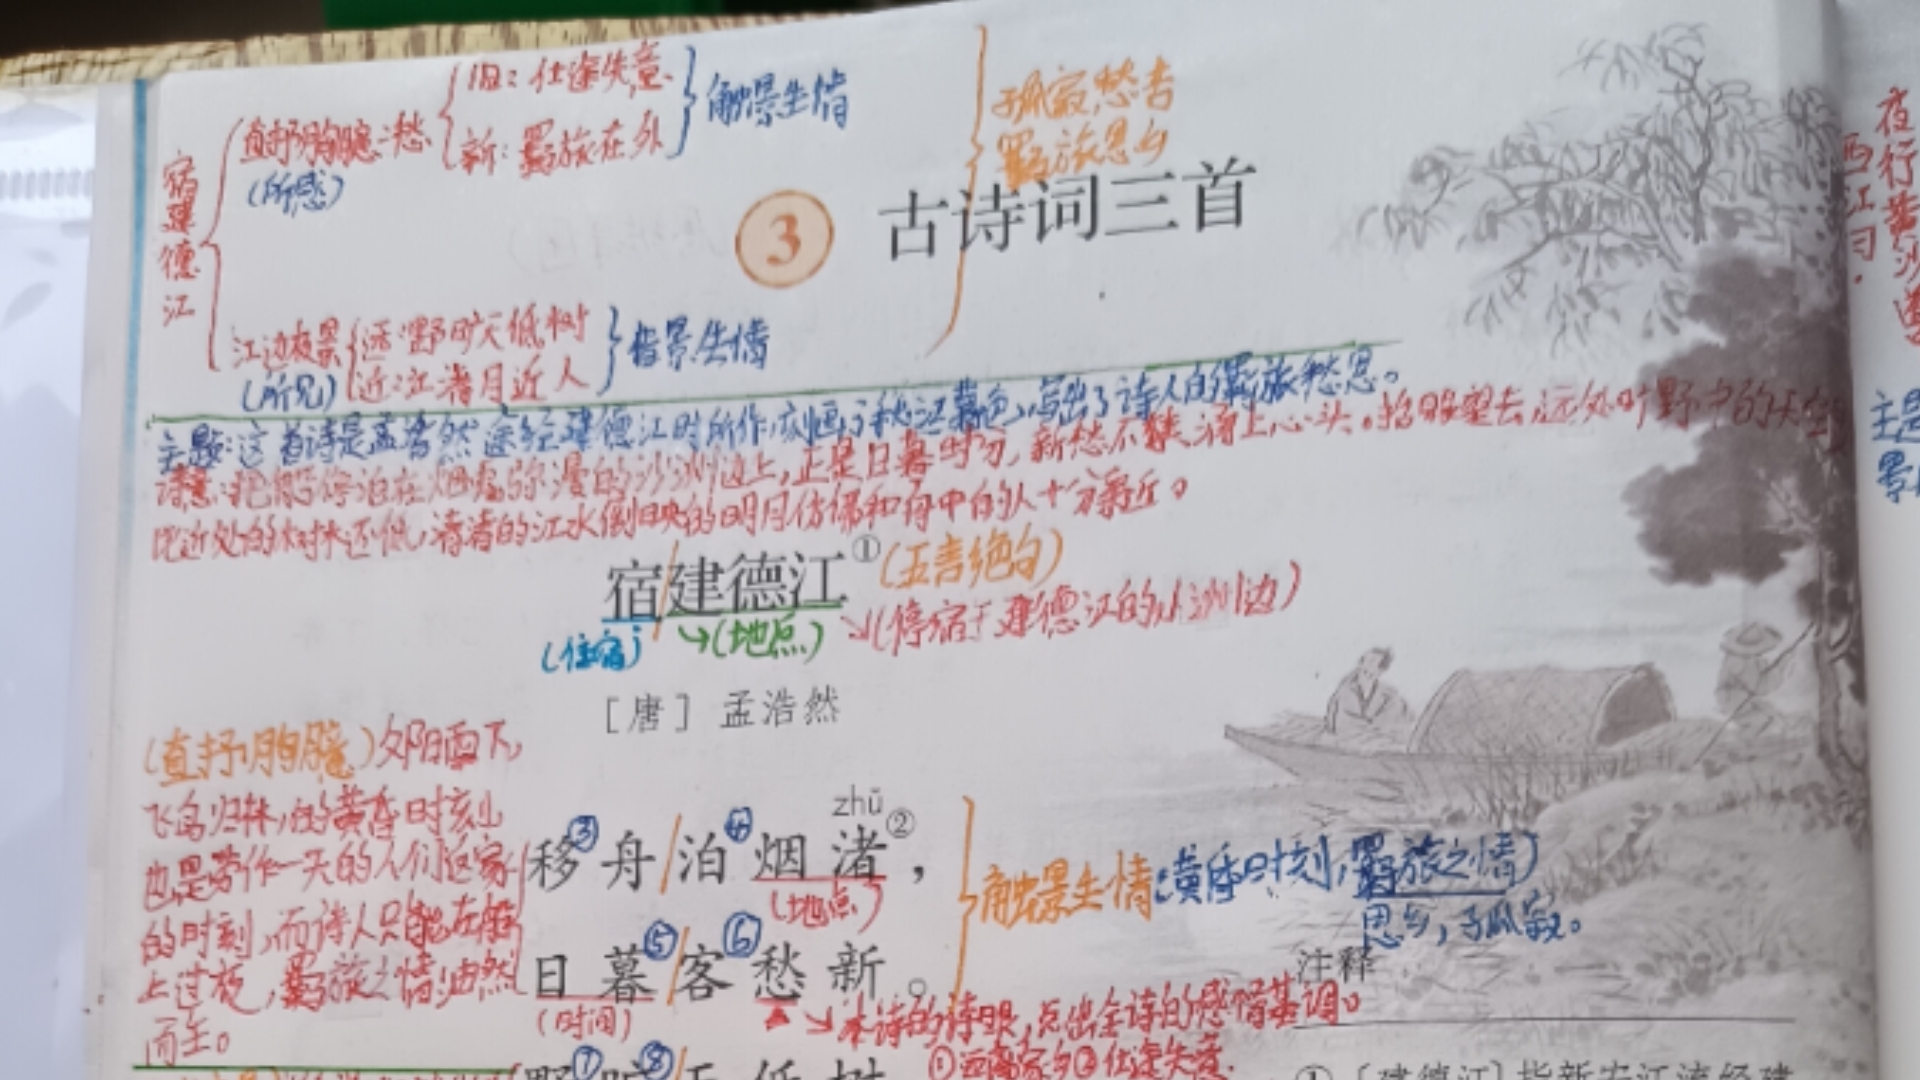 旧：仕途失意
直抒胸臆：愁
新：羁旅在外
触景生情
(所感)
孤寂愁苦
羁旅思乡
宿建德江
3 古诗词三首
江边夜景
(所见)
远：野旷天低树
近：江清月近人
借景生情
主题：这首诗是孟浩然途经建德江时所作，刻画了秋江暮色，写出了诗人的羁旅愁思。
诗意：把船停泊在烟雾弥漫的沙洲边上，正是日暮时分，新愁不禁涌上心头。抬眼望去，远处田野中的天空
比近处的树木还低，清清的江水倒映的明月仿佛和舟中的人十分亲近。
宿/建德江① (五言绝句)
(住宿) (地点) (停宿于建德江的小洲边)
［唐］孟浩然
(直抒胸臆)夕阳西下，
飞鸟归林，的黄昏时刻也
也是劳作一天的人们返家
的时刻，而诗人只能在船
上过夜，羁旅之情油然
而生。
zhǔ
移③舟/泊④烟渚②，
(地点)
日暮⑤/客⑥愁新。
(时间)
触景生情：(黄昏时刻，羁旅之情)
思乡，孤寂。
本诗的诗眼，点出全诗的感情基调。
①远离家乡②仕途失意
注释
野⑦旷⑧/天低树
①［建德江］指新安江流经建
夜行黄沙道
西江月
主题